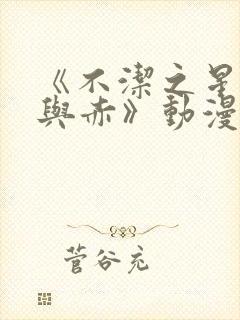 《不潔之星
與赤》動漫
菅谷充